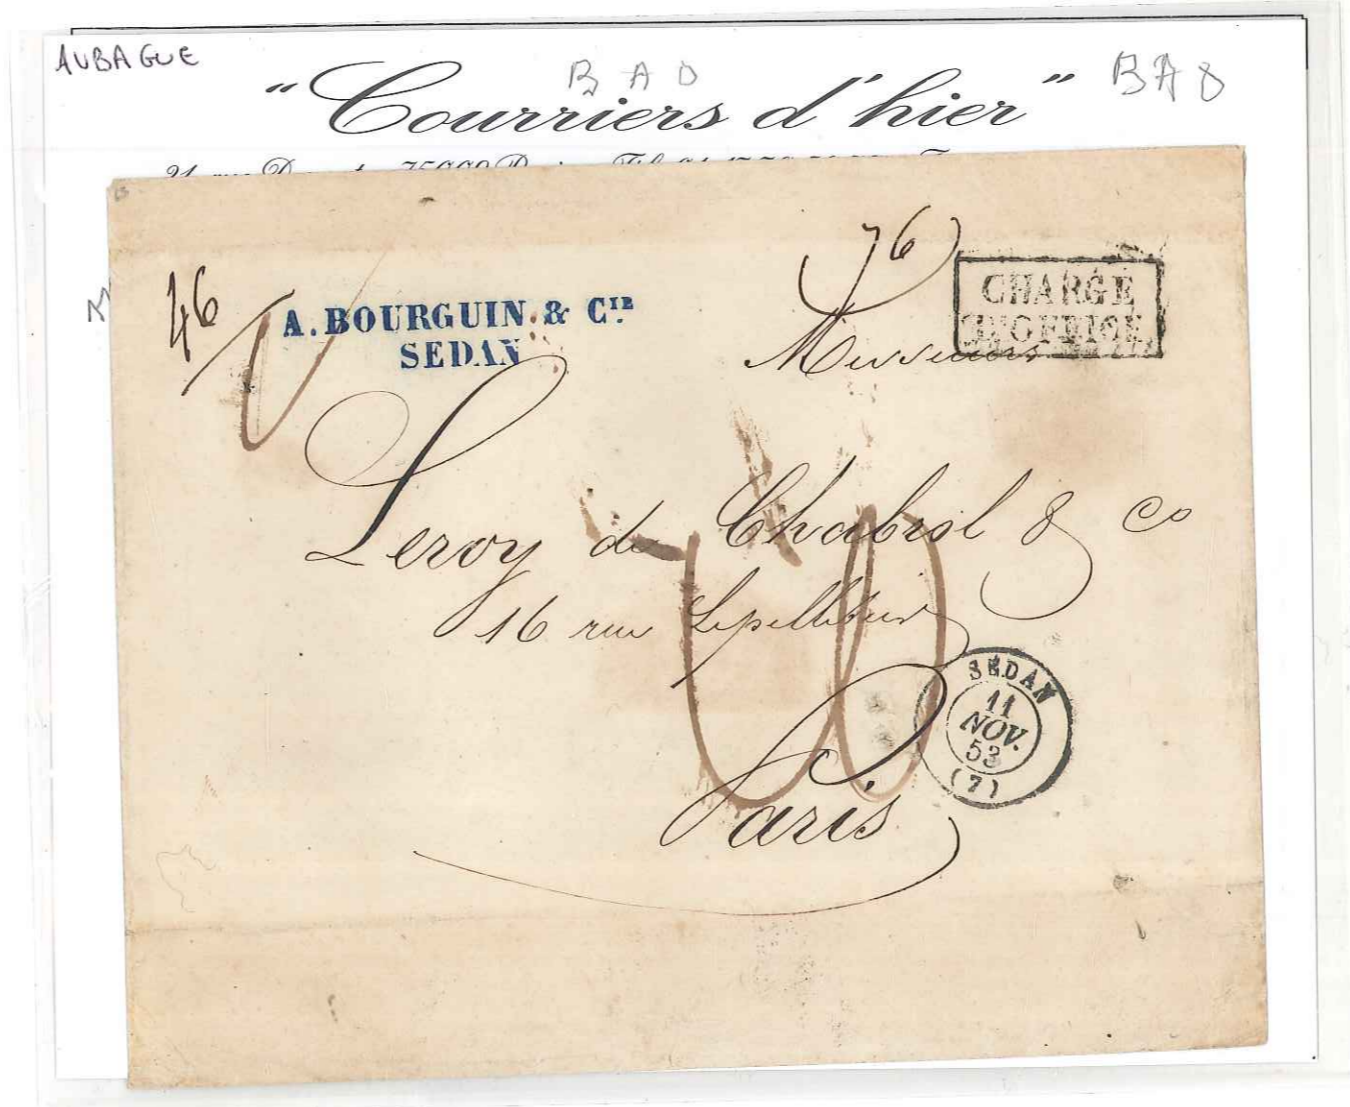 AUBAGUE
BAO
BA8
"Courriers d'hier"
46
76
A. BOURGUIN. & CIE
SEDAN
CHARGÉ
D'OFFICE
Messieurs
Leroy de Chabrol & Co
16 rue Lepelletier
Paris
SEDAN
11
NOV.
53
(7)